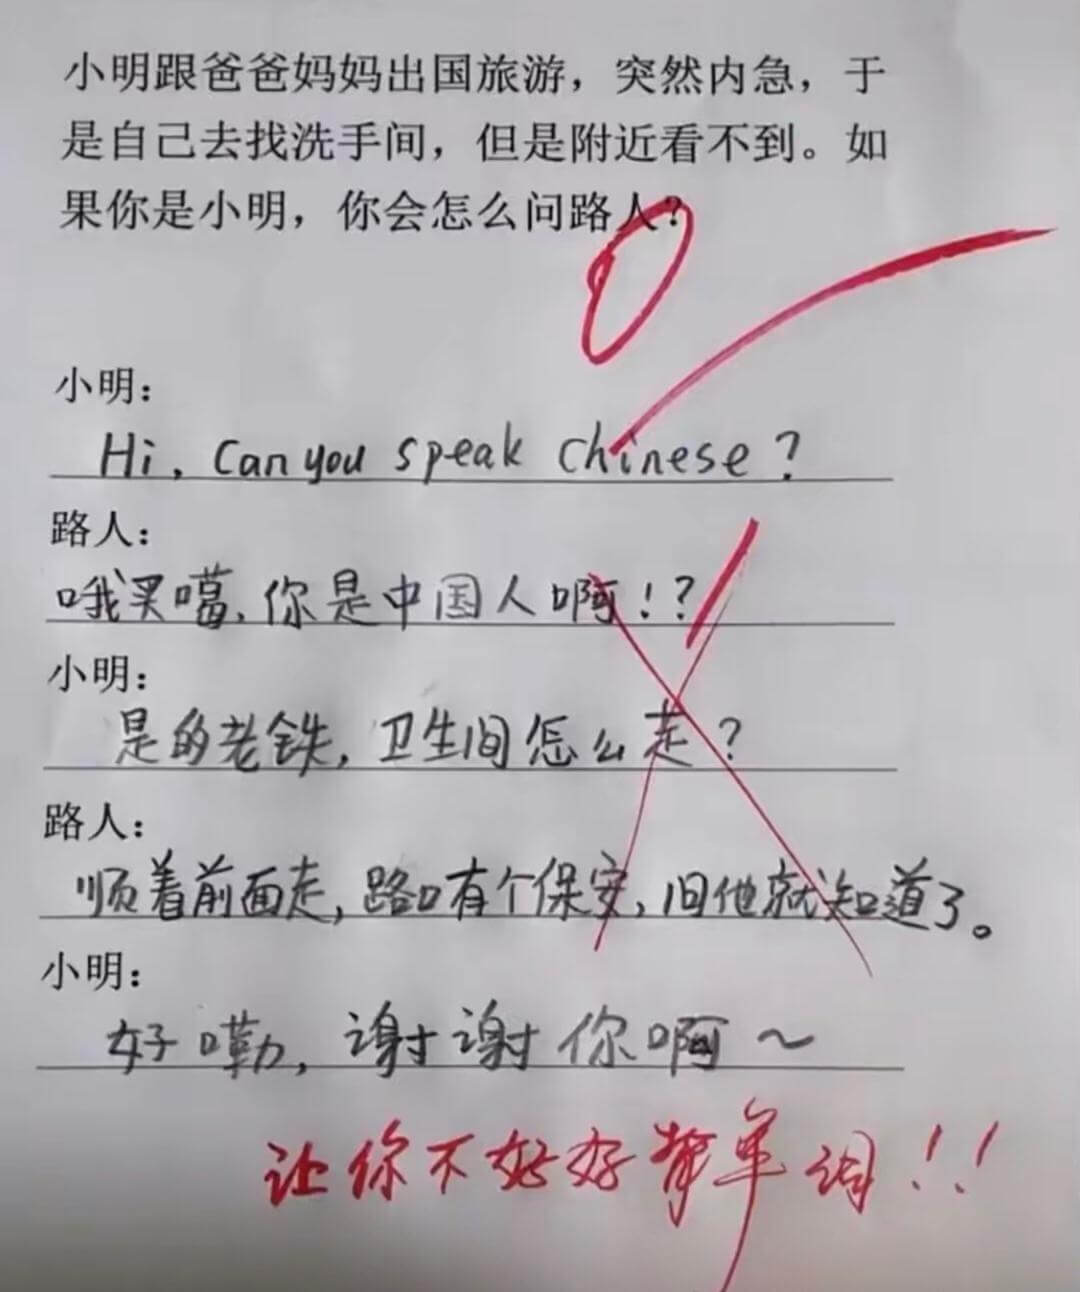 小明跟爸爸妈妈出国旅游，突然内急，于
是自己去找洗手间，但是附近看不到。如
果你是小明，你会怎么问路人？
0
小明：
Hi, Can you speak Chinese?
路人：
哦买噶，你是中国人啊！？
小明：
是的老铁，卫生间怎么走？
路人：
顺着前面走，路口有个保安，问他就知道了。
小明：
好嘞，谢谢你啊～
让你不好好背单词！！